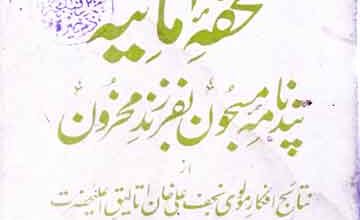 تحفۂ امانیہ
پندنامہ مسجون بفرزند محزون
از
نتائج افکار مولوی نجف علی خان اتالیق اعلیٰحضرت